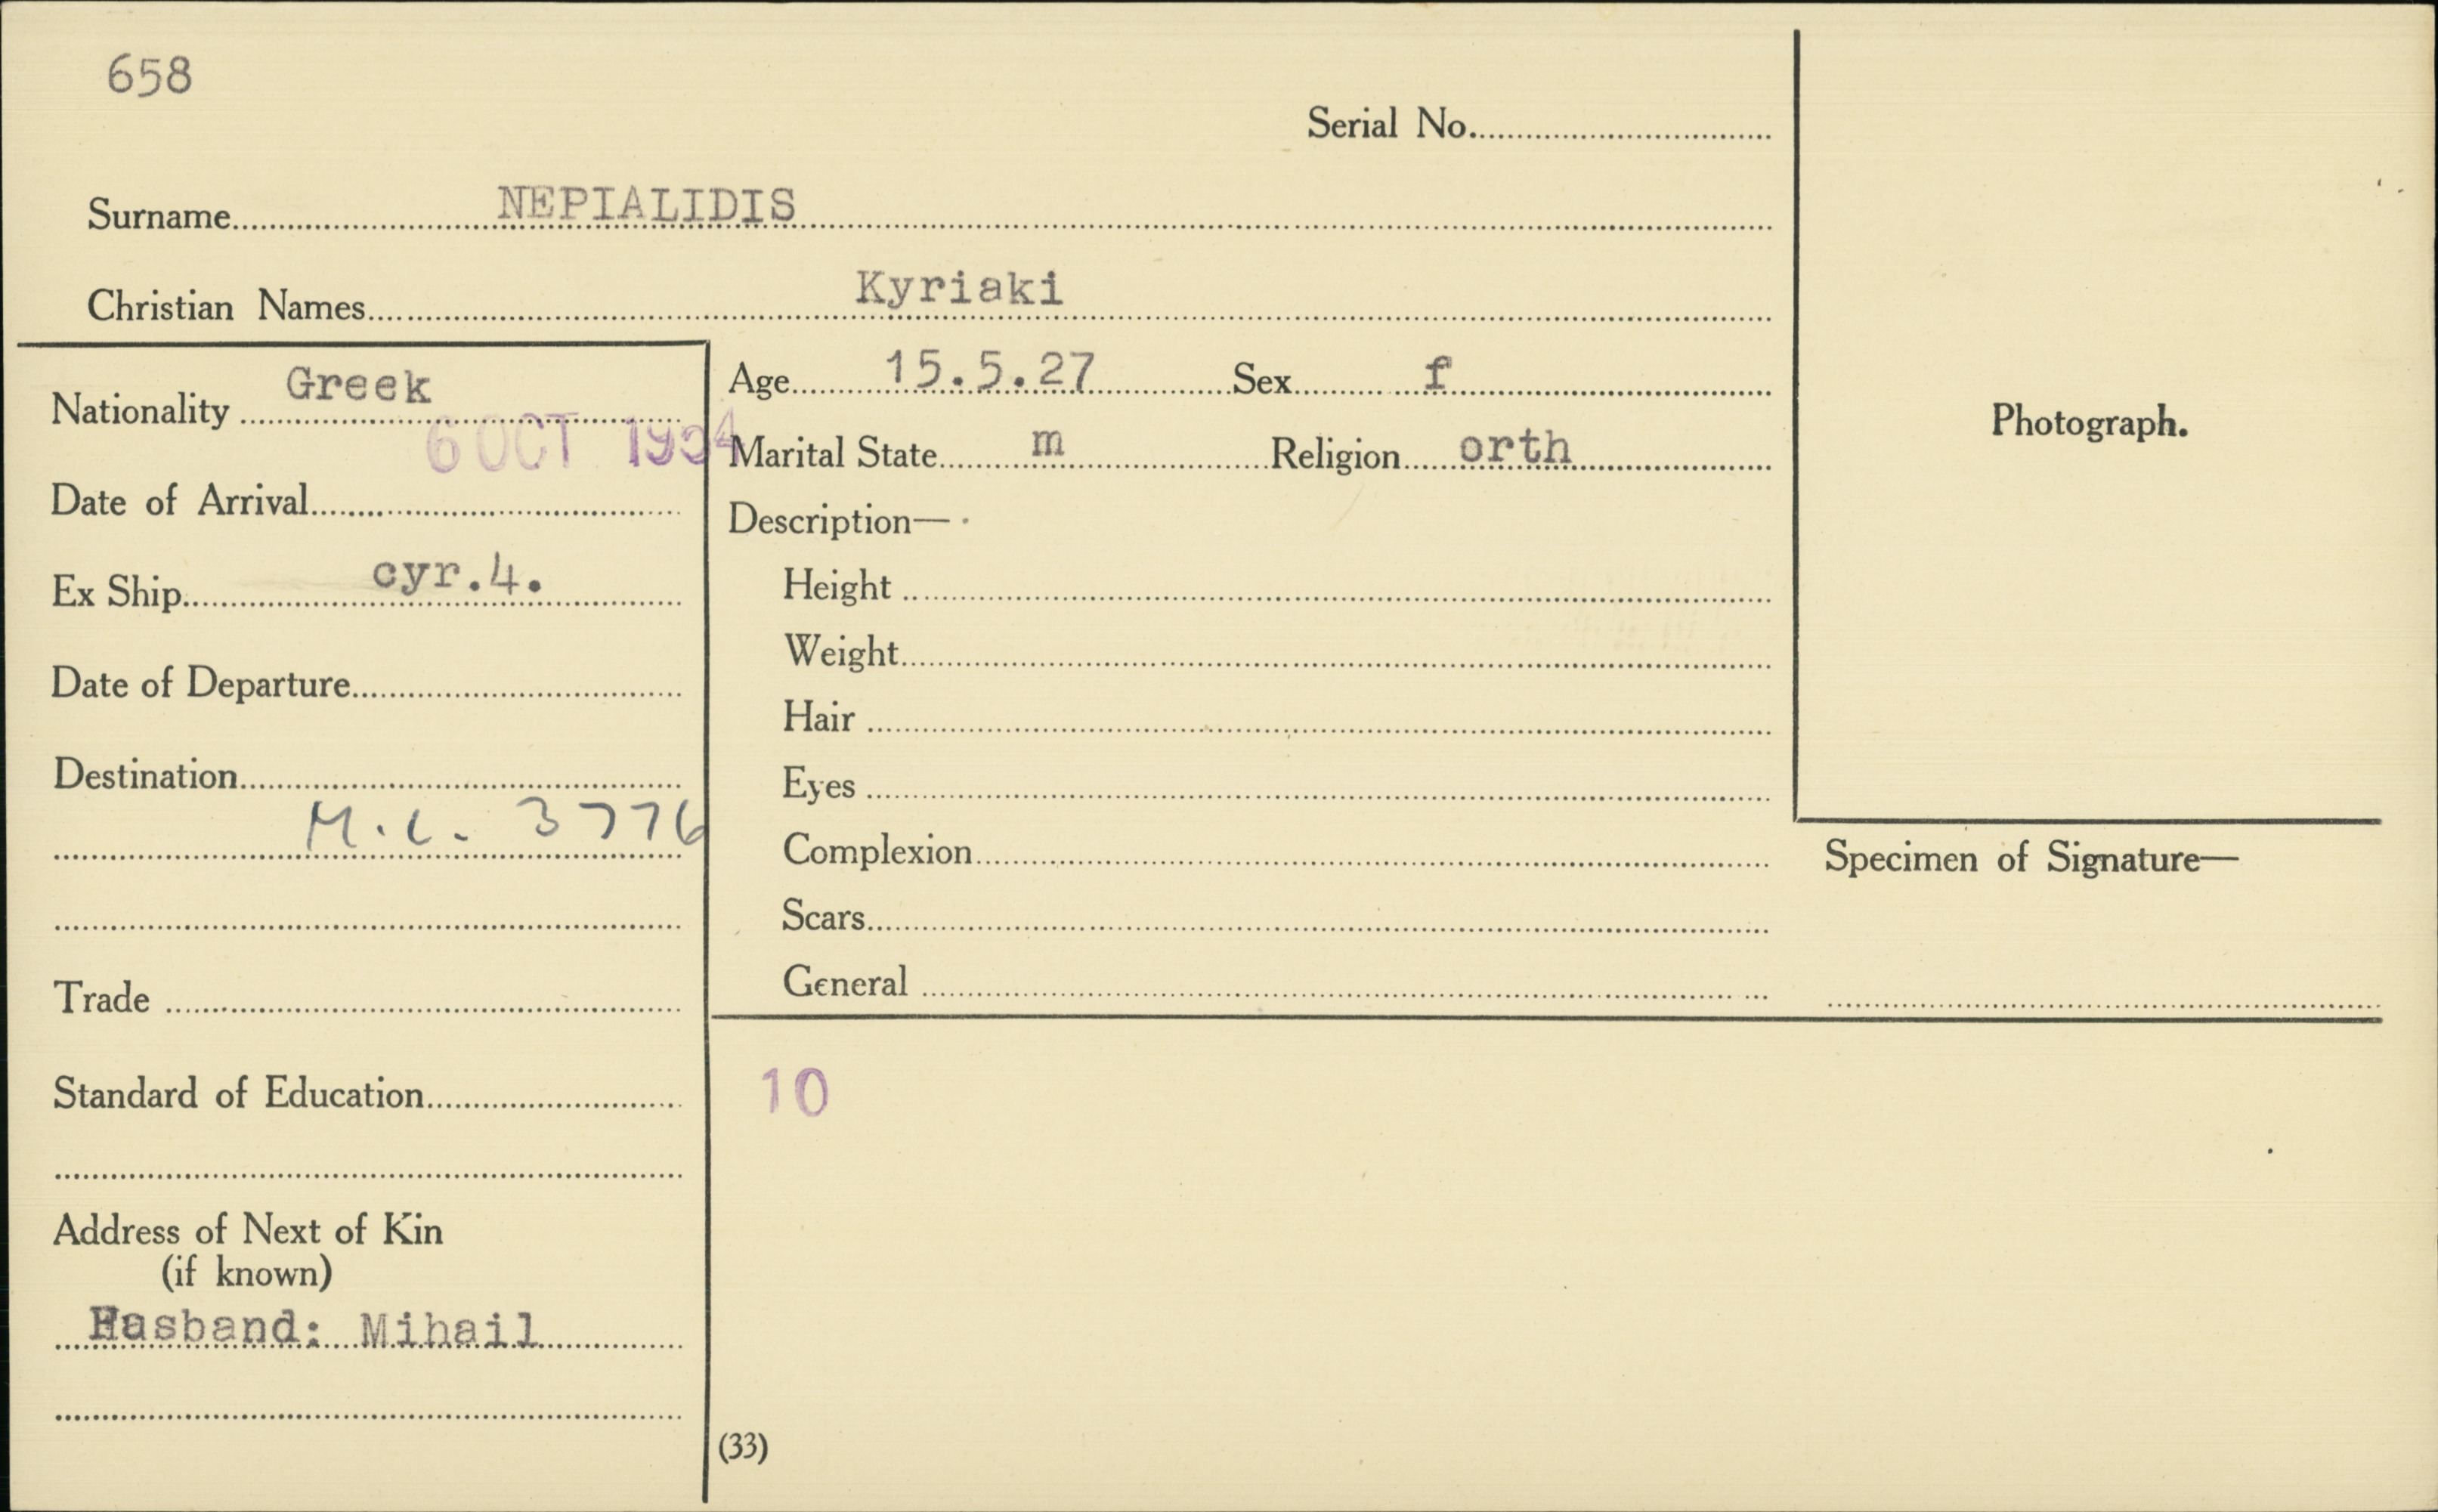 658
Serial No.
Surname NEPIALIDIS
Christian Names Kyriaki
Nationality Greek
6 OCT 1954
Date of Arrival
Ex Ship cyr.4.
Date of Departure
Destination
M.C. 3776
Trade
Standard of Education
Address of Next of Kin
(if known)
Husband: Mihail
Age 15.5.27 Sex f
Marital State m Religion orth
Description—
Height
Weight
Hair
Eyes
Complexion
Scars
General
10
(33)
Photograph.
Specimen of Signature—